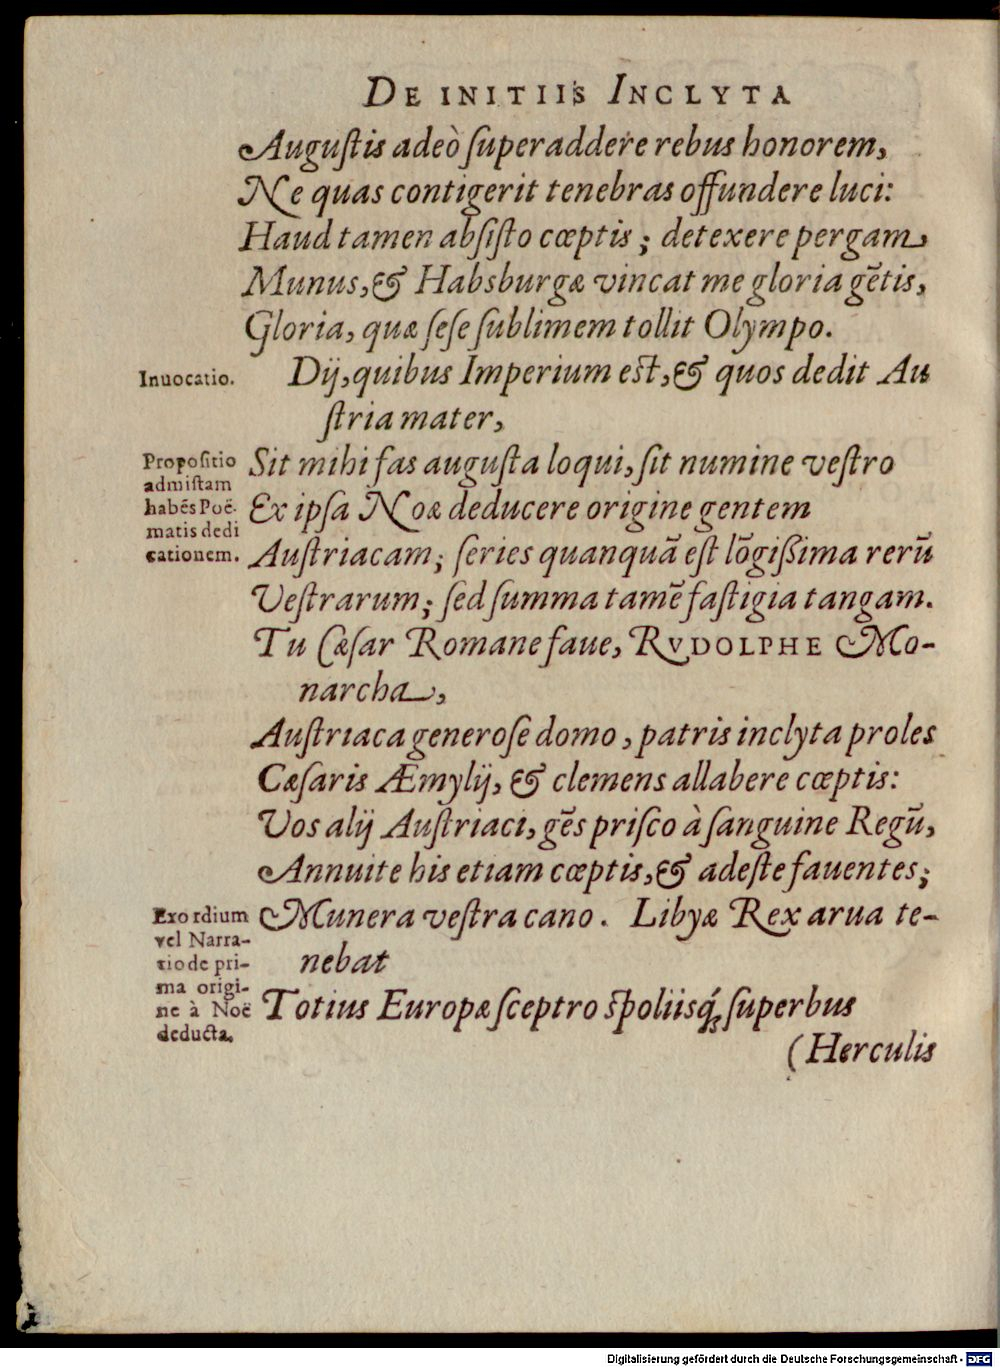 DE INITIIS INCLYTA
Auguſtis adeò ſuperaddere rebus honorem,
Ne quas contigerit tenebras offundere luci:
Haud tamen abſiſto cœptis; detexere pergam,
Munus, & Habsburgæ vincat me gloria gẽtis,
Gloria, quæ ſeſe ſublimem tollit Olympo.
Inuocatio.
Dij, quibus Imperium eſt, & quos dedit Au
ſtria mater,
Propoſitio
admiſtam
habẽs Poë-
matis dedi
cationem.
Sit mihi fas auguſta loqui, ſit numine veſtro
Ex ipſa Noæ deducere origine gentem
Auſtriacam; ſeries quanquã eſt lõgißima rerũ
Veſtrarum; ſed ſumma tamẽ faſtigia tangam.
Tu Cæſar Romane faue, RVDOLPHE Mo-
narcha,
Auſtriaca generoſe domo, patris inclyta proles
Cæſaris Æmylij, & clemens allabere cœptis:
Vos alij Auſtriaci, gẽs priſco à ſanguine Regũ,
Annuite his etiam cœptis, & adeſte fauentes;
Exordium
vel Narra-
tio de pri-
ma origi-
ne à Noë
deducta.
Munera veſtra cano. Libyæ Rex arua te-
nebat
Totius Europæ ſceptro ſpoliisq́; ſuperbus
(Herculis
Digitalisierung gefördert durch die Deutsche Forschungsgemeinschaft - DFG